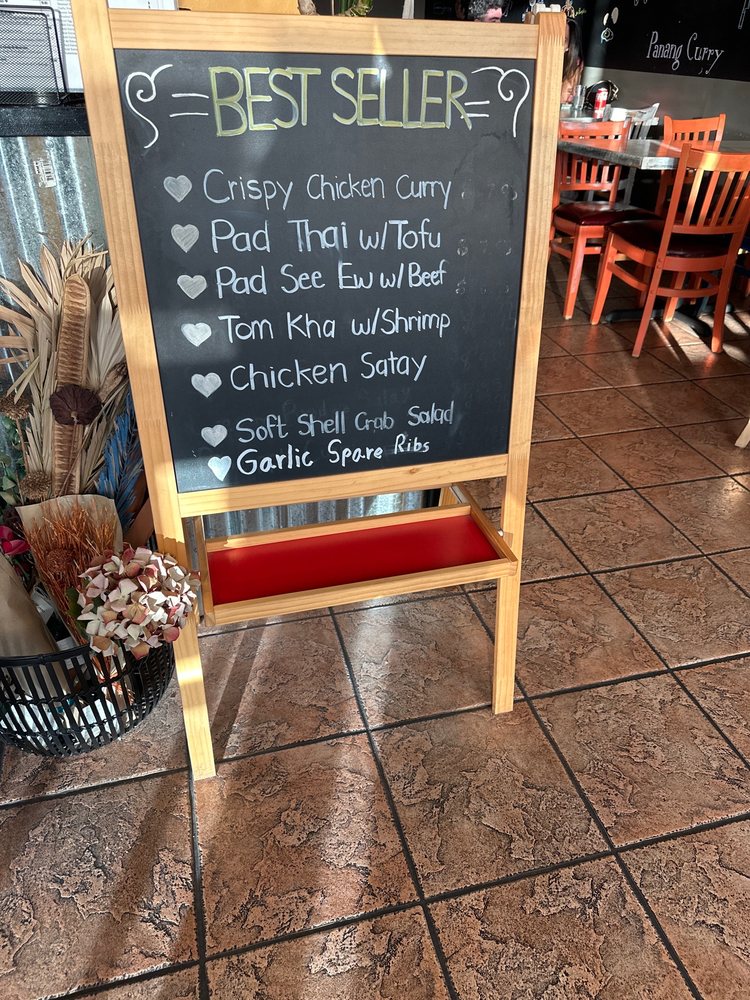 BEST SELLER
Crispy Chicken Curry
Pad Thai w/Tofu
Pad See Ew w/Beef
Tom Kha w/Shrimp
Chicken Satay
Soft Shell Crab Salad
Garlic Spare Ribs
Panang Curry